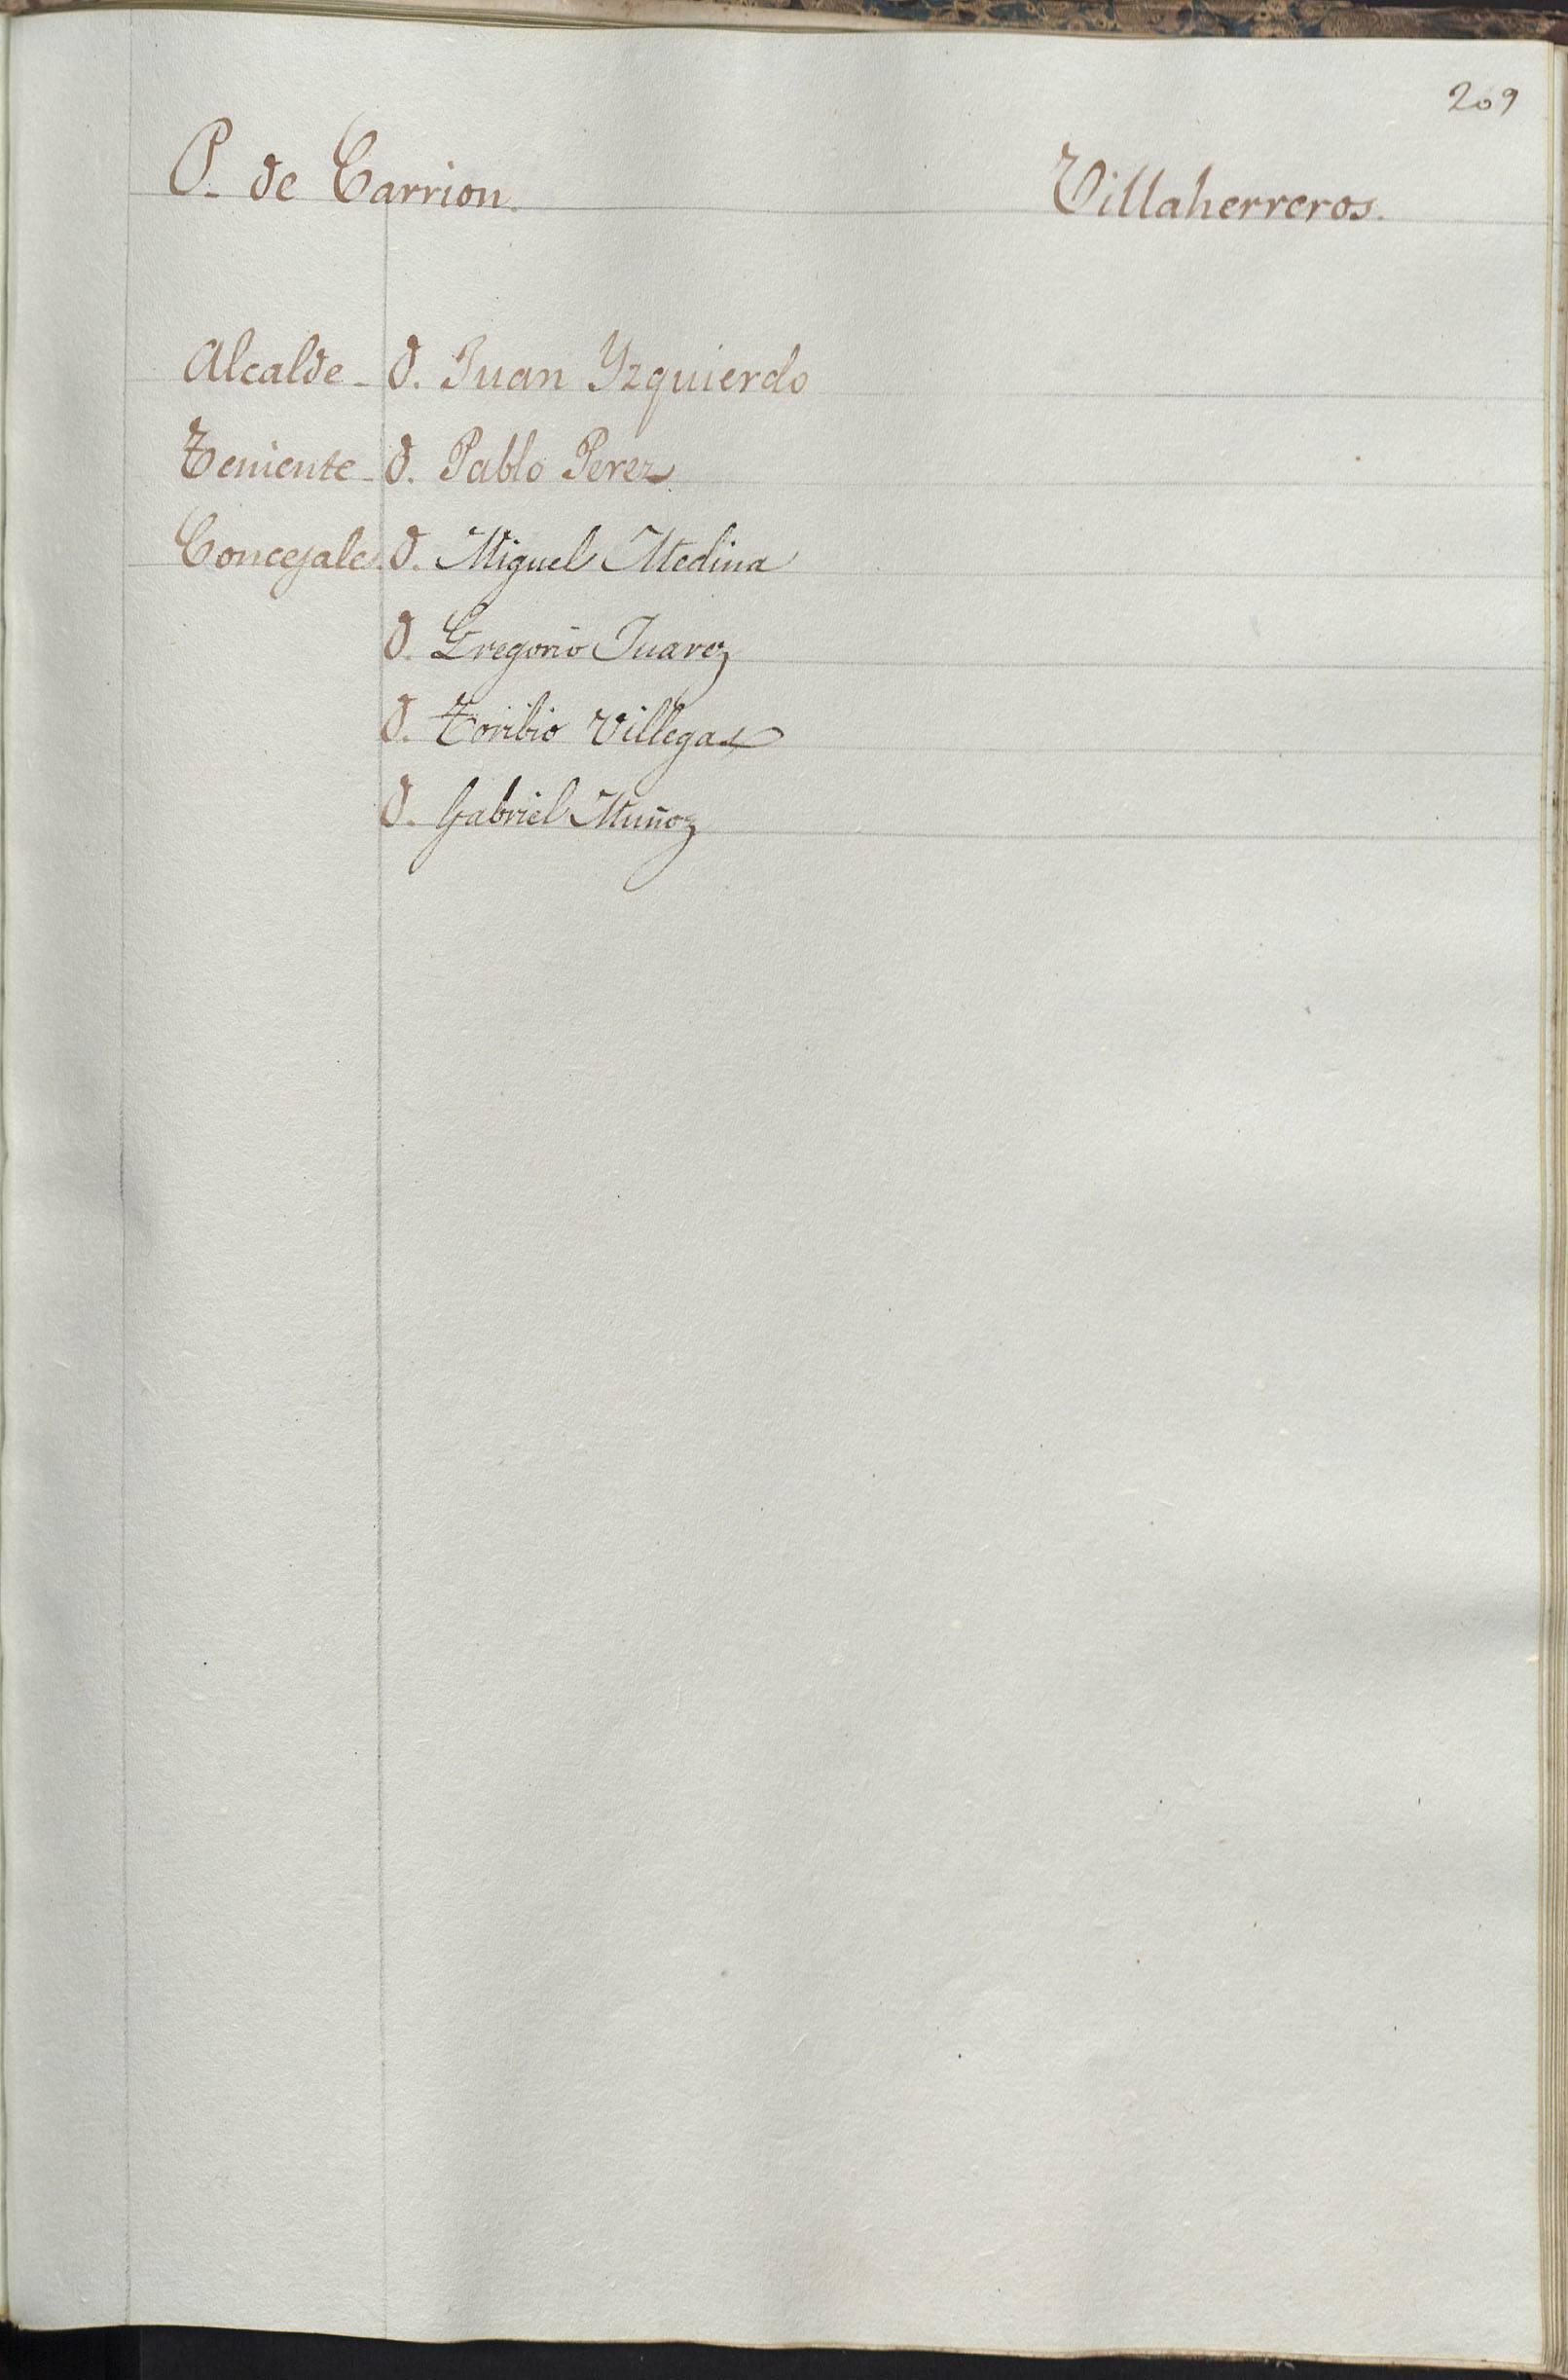 209
P. de Carrion. Villaherreros.
Alcalde - D. Juan Yzquierdo
Teniente - D. Pablo Perez
Concejales. D. Miguel Medina
D. Gregorio Juarez
D. Toribio Villegas
D. Gabriel Muñoz